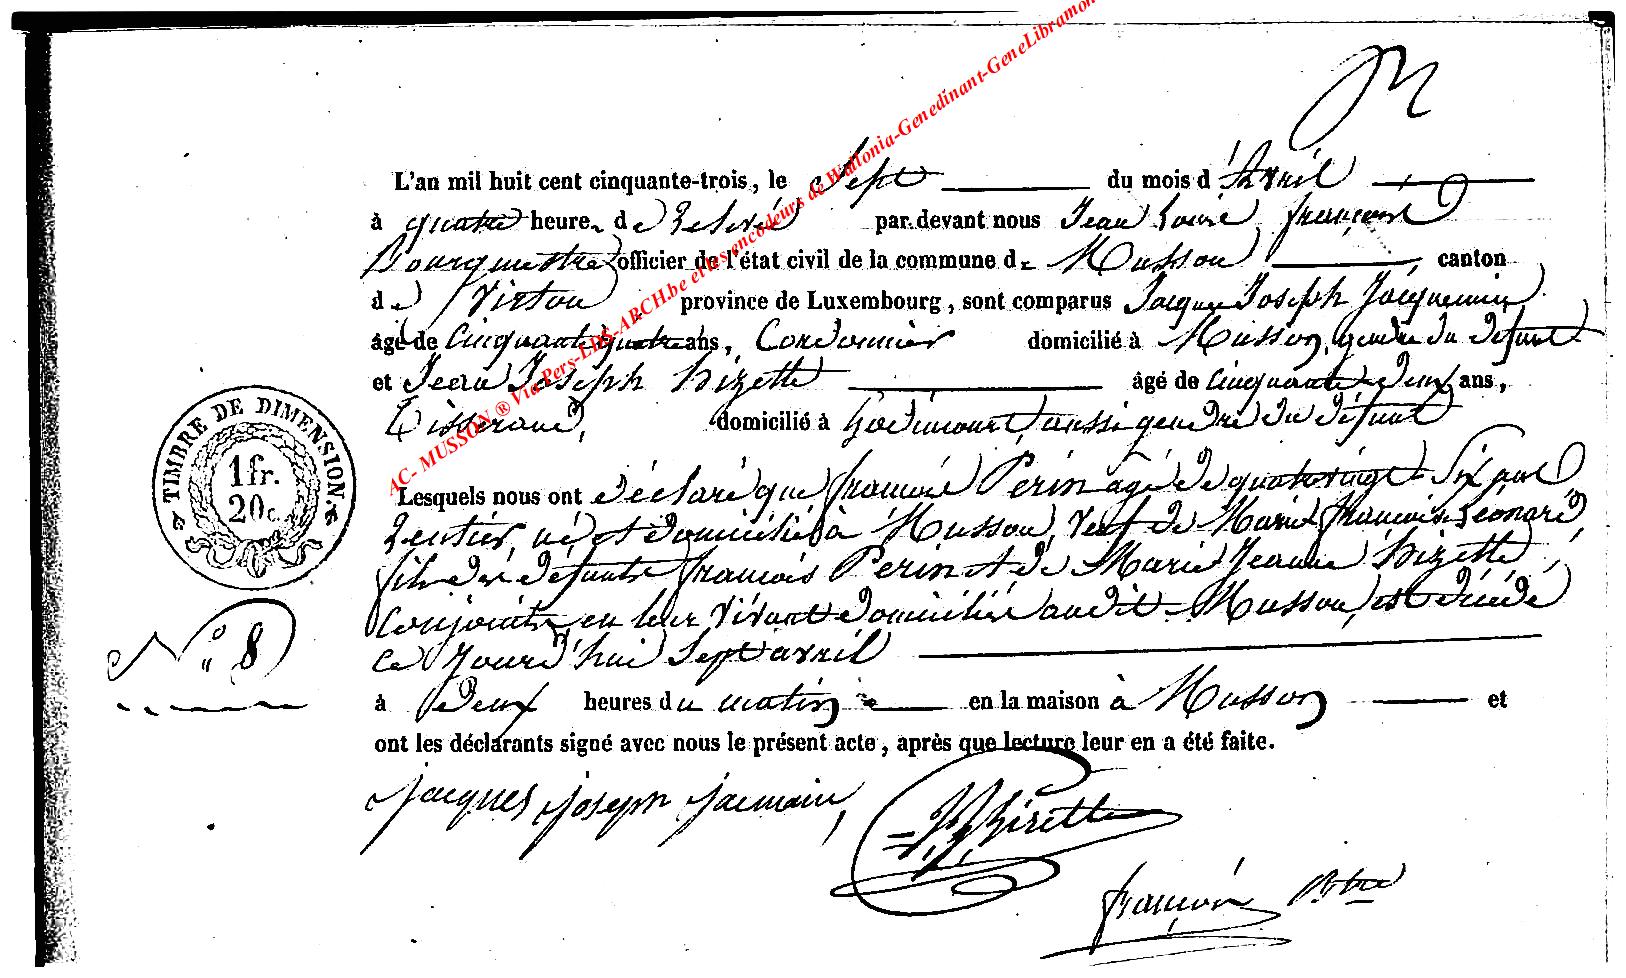 L'an mil huit cent cinquante-trois, le Sept du mois d'Avril
à quatre heure. de Relevé par devant nous Jean Louis françois
Bourguestre officier de l'état civil de la commune de Musson, canton
de Virton province de Luxembourg, sont comparus Jacques Joseph Jacquemin
âgé de Cinquante quatre ans, Cordonnier domicilié à Musson, gendre du défunt
et Jean Joseph hizette âgé de cinquante deux ans,
Tisserand, domicilié à Godincourt, aussi gendre du défunt
Lesquels nous ont déclaré que françois Perin agé de quatre vingt Six ans
Rentier, né et domicilié à Musson, veuf de Marie françoise Léonard,
fils des defunts françois Perin et de Marie Jeanne hizette,
Conjoints en leur vivant domiciliés audit Musson, est décédé
Ce Jourd'hui Sept avril
à Deux heures du matin en la maison à Musson et
ont les déclarants signé avec nous le présent acte, après que lecture leur en a été faite.
Jacques joseph jacmain,
J.J. hizette
françois
TIMBRE DE DIMENSION
1 fr.
20 c.
N° 8
AC- MUSSON ® Via Pers-LDS-ARCH.be et les encodeurs de Wallonia-Genedinant-GeneLibramon